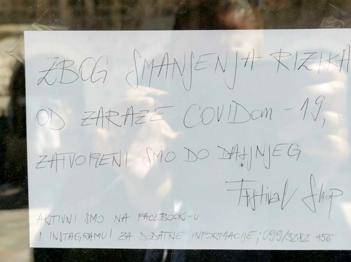 ZBOG SMANJENJA RIZIKA
OD ZARAZE COVIDOM-19,
ZATVORENI SMO DO DALJNJEG
Festival Shop
AKTIVNI SMO NA FACEBOOK-U
I INSTAGRAMU ZA DODATNE INFORMACIJE; 099/